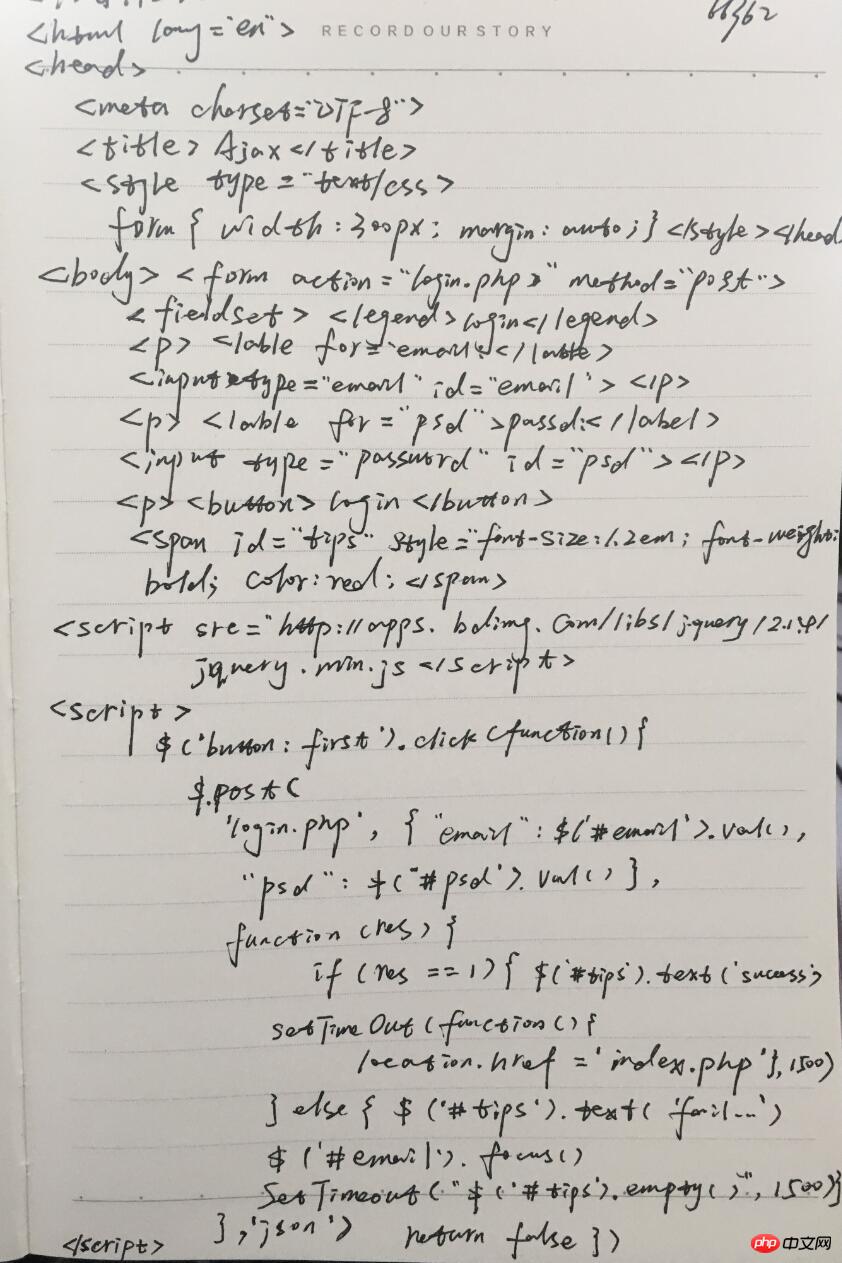 66362
<html lang="en"> RECORDOURSTORY
<head>
<meta charset="UTF-8">
<title>Ajax</title>
<style type="text/css>
form { width:300px; margin:auto;} </style></head
<body> <form action="login.php" method="post">
<fieldset> </legend>login</legend>
<p> <lable for="email:</lable>
<input type="email" id="email"> </p>
<p> <lable for="psd">passd:</label>
<input type="password" id="psd"></p>
<p><button>login</button>
<span id="tips" style="font-size:1.2em; font-weight:
bold; color:red;</span>
<script src="http://apps.bdimg.com/libs/jquery/2.1.4/
jquery.min.js</script>
<script>
$('button:first').click(function(){
$.post(
'login.php', {"email":$('#email').val(),
"psd":$("#psd').val()},
function(res){
if(res==1){ $('#tips').text('sucess')
setTimeOut(function(){
location.href='index.php'},1500)
} else { $('#tips').text('fail...')
$('#email').focus()
SetTimeout("$('#tips').empty()",1500)}
},'json') return false })
</script>
php中文网